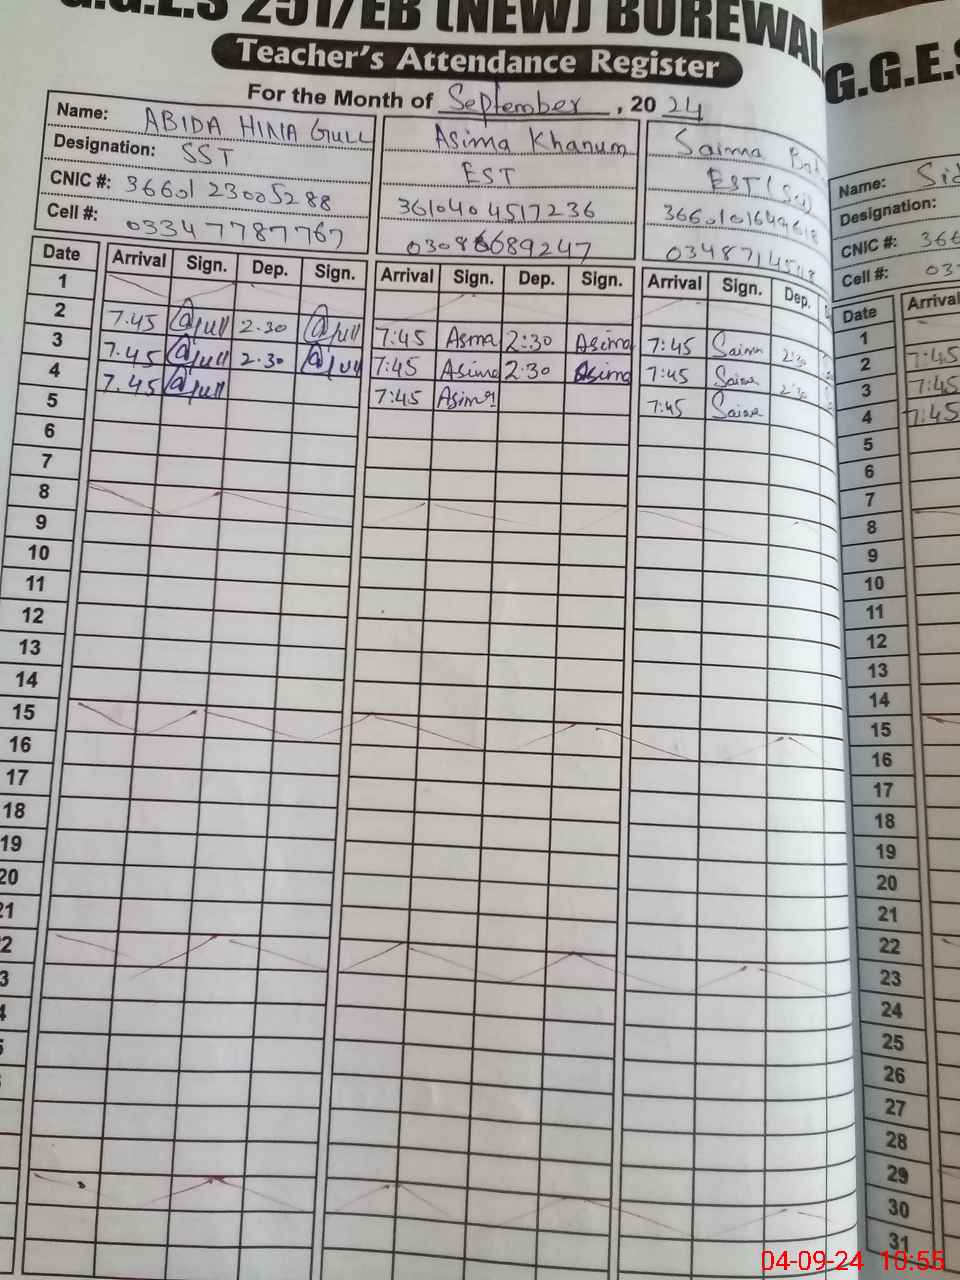 G.G.E.S 251/EB (NEW) BUREWAL
Teacher's Attendance Register
For the Month of September, 2024
Name: ABIDA HINA GULL Asima Khanum Saima
Designation: SST EST EST (Sci)
CNIC #: 3660123005288 3610404517236
Cell #: 03347787767
Date Arrival Sign. Dep. Sign. Arrival Sign. Dep. Sign. Arrival Sign. Dep.
1
2 7.45 @gull 2.30 @gull 7:45 Asma 2:30 Asima 7:45 Saima 2:30
3 7.45 @gull 2.30 @gull 7:45 Asima 2:30 Asima 7:45 Saima 2:30
4 7.45 @gull 7:45 Asima 7:45 Saima
5
6
7
8
9
10
11
12
13
14
15
16
17
18
19
20
21
2
3
4
5
G.G.E.S
Name:
Designation:
CNIC #: 366
Cell #: 03
Date Arrival
1
2 7:45
3 7:45
4 7:45
5
6
7
8
9
10
11
12
13
14
15
16
17
18
19
20
21
22
23
24
25
26
27
28
29
30
31
04-09-24 10:55